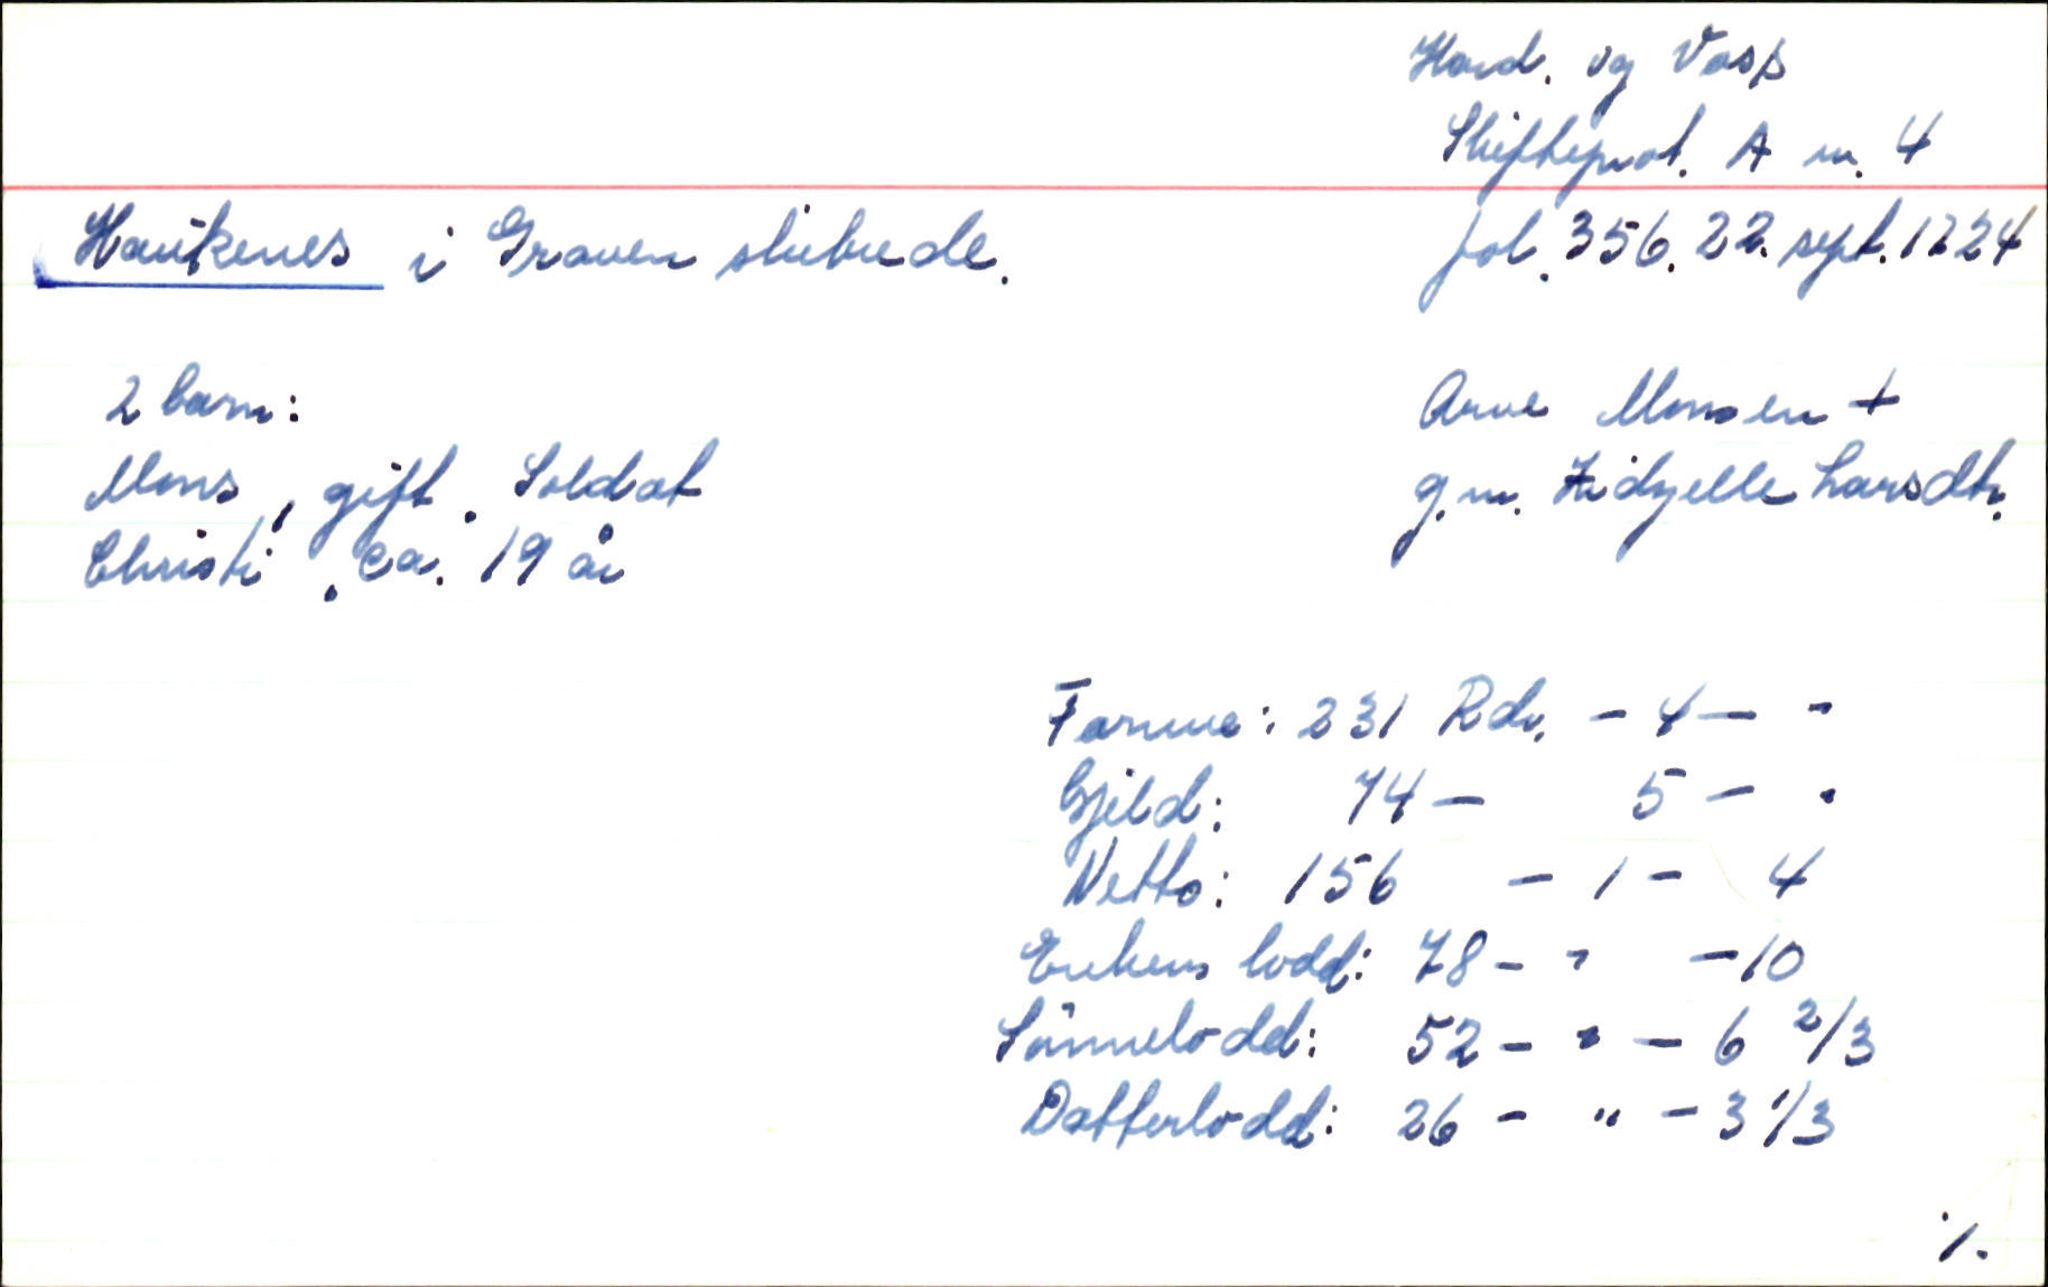 Hard. og Voss
Skifteprot. A nr. 4
Haukenes i Graven skibrede.
fol. 356. 22. sept. 1724
2 barn:
Mons, gift. Soldat
Christi. ca. 19 år
Arve Monsen +
g.m. Zidzelle Larsdtr.
Formue: 231 Rdr. - 4 - -
Gjeld: 74 - 5 - "
Netto: 156 - 1 - 4
Enkens lodd: 78 - " - 10
Sønnelodd: 52 - " - 6 2/3
Datterlodd: 26 - " - 3 1/3
·/.